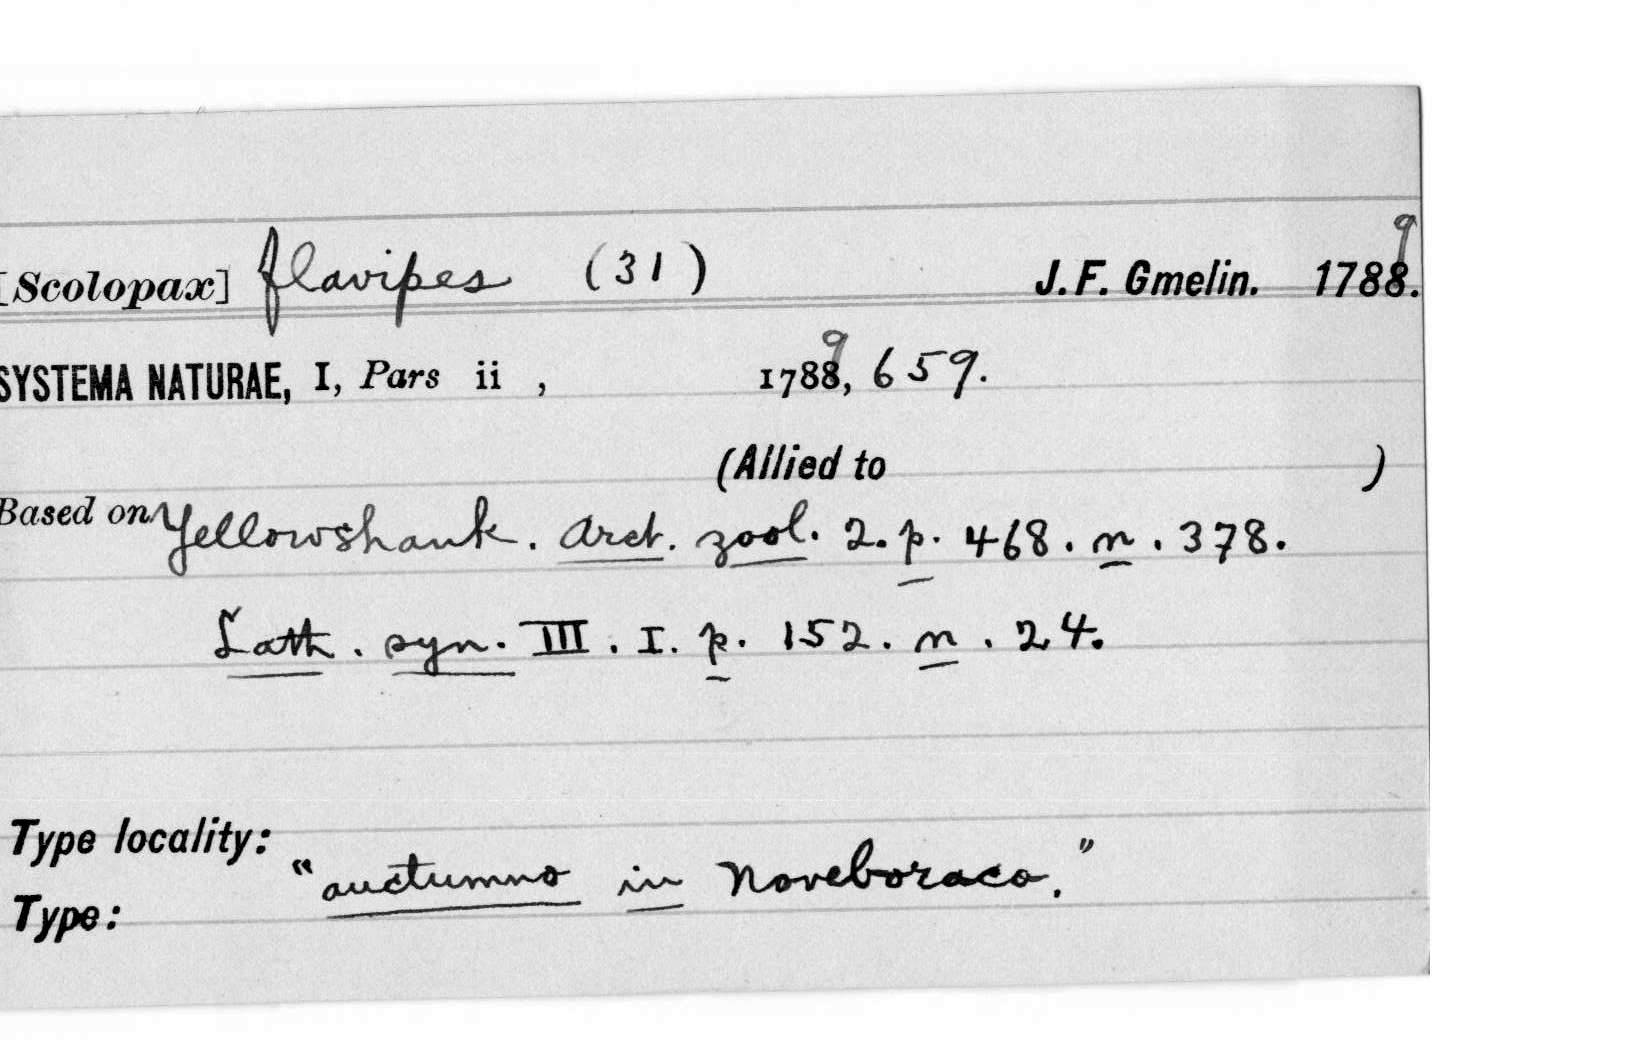 [Scolopax] flavipes (31) J. F. Gmelin. 1788.9
SYSTEMA NATURAE, I, Pars ii , 1788,9 659.
(Allied to )
Based on Yellowshank. Arct. zool. 2. p. 468. n. 378.
Lath. syn. III. I. p. 152. n. 24.
Type locality:
"auctumno in Noveboraco."
Type: